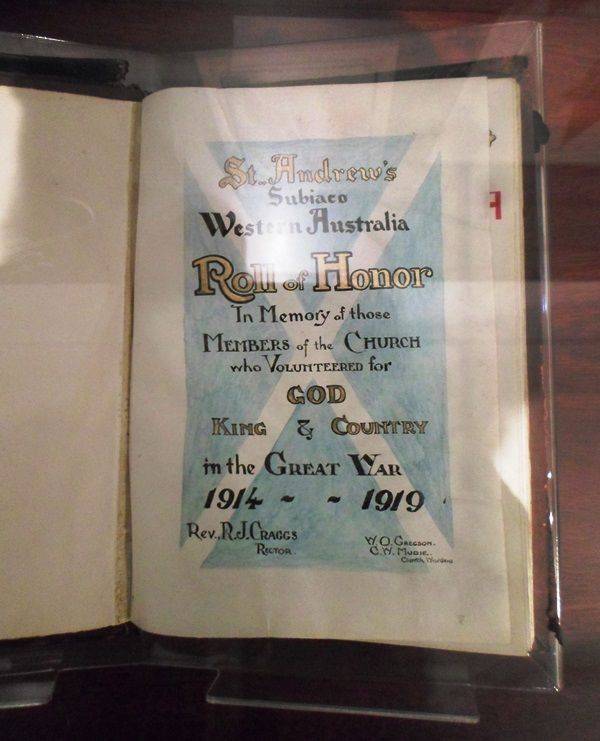 St. Andrew's
Subiaco
Western Australia
Roll of Honor
In Memory of those
MEMBERS of the CHURCH
who VOLUNTEERED for
GOD
KING & COUNTRY
in the GREAT WAR
1914 ~ ~ 1919
Rev. R.J. CRAGGS
RECTOR.
W.O. GREGSON.
C.W. MUDIE.
Church Wardens